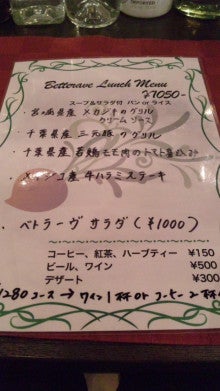 Betterave Lunch Menu
¥1050-
スープ&サラダ付 パン or ライス
県産 メカジキのグリル
クリームソース
・千葉県産 三元豚のグリル
・千葉県産 若鶏モモ肉のトマト煮込み
・メキシコ産 牛ハラミステーキ
・ベトラーヴ サラダ (¥1000)
コーヒー、紅茶、ハーブティー ¥150
ビール、ワイン ¥500
デザート ¥300
1280 コース → ワイン1杯 or コーヒー